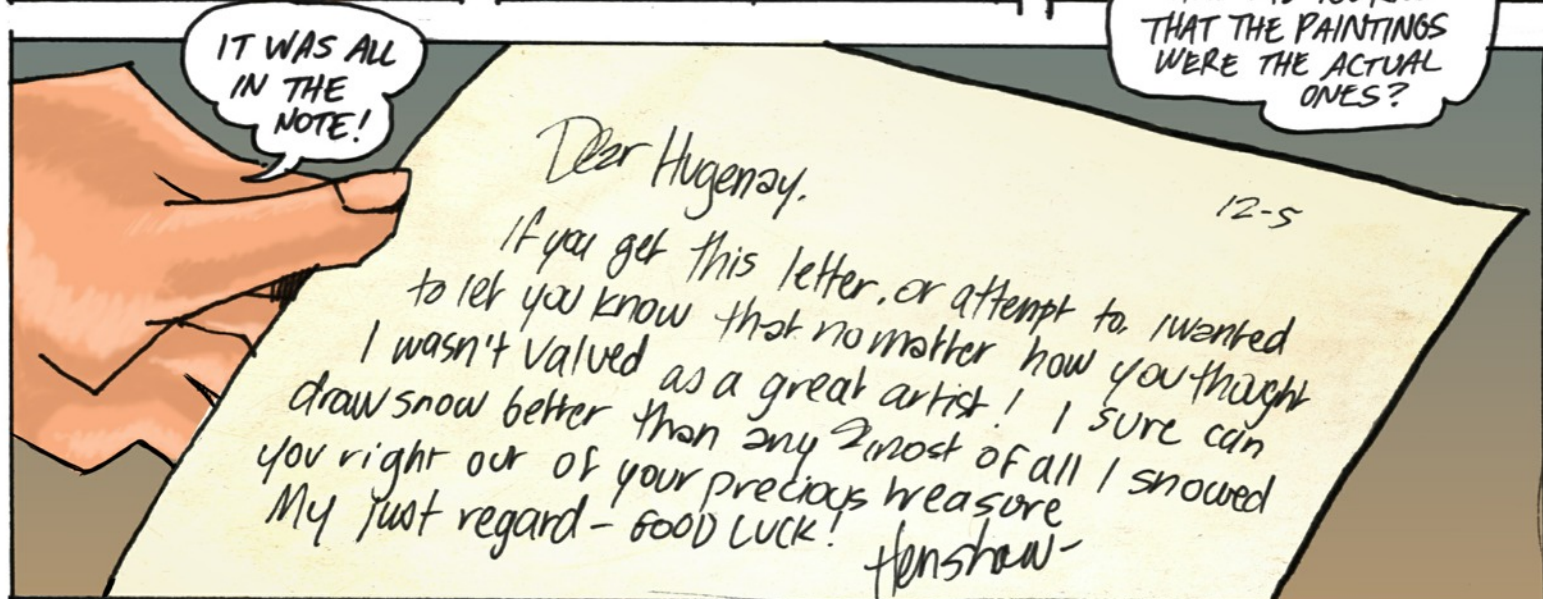 IT WAS ALL
IN THE
NOTE!
THAT THE PAINTINGS
WERE THE ACTUAL
ONES?
Dear Hugenay.
12-5
If you get this letter, or attempt to, I wanted
to let you know that no matter how you thought
I wasn't valued as a great artist! I sure can
draw snow better than any & most of all I snowed
you right out of your precious treasure
My just regard - GOOD LUCK!
Henshaw-